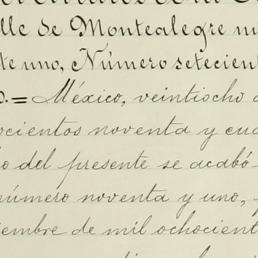 lle de Montealegre nú
te uno, Número setecien
o. = México, veintiocho d
ocientos noventa y cua
o del presente se acabó
número noventa y uno,
iembre de mil ochocient